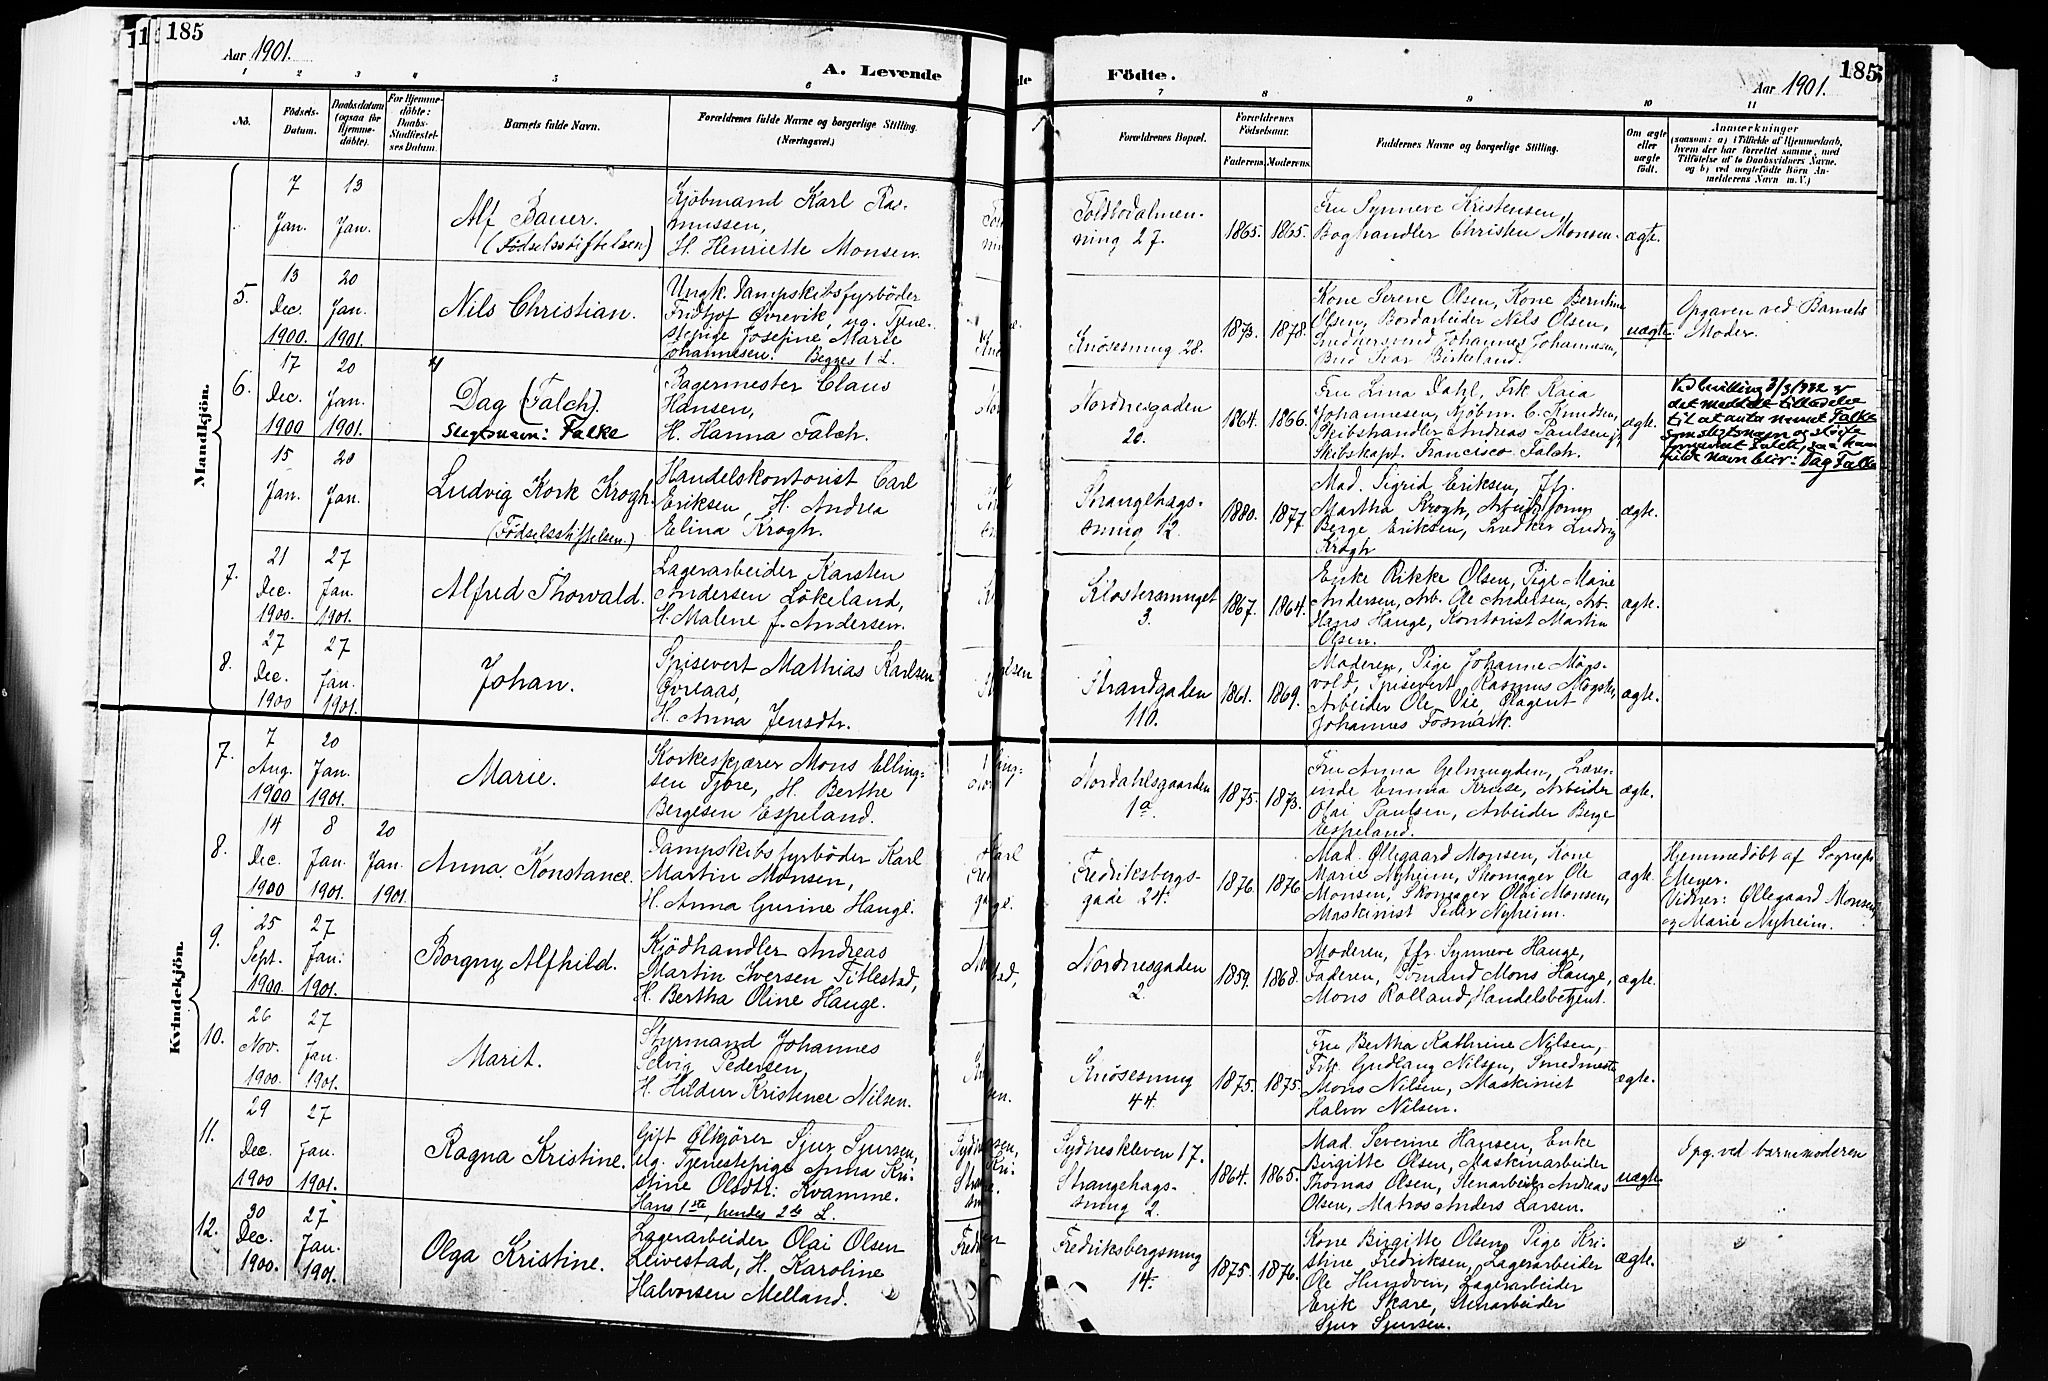 185
Aar 1901.
A. Levende
Födte.
185
Aar 1901.
1 2 3 4 5 6 7 8 9 10 11
No.
Födsels-
Datum.
Daabsdatum
(ogsaa for
Hjemme-
døbte).
For Hjemme-
döbte:
Daabs-
Stadfæstel-
ses Datum.
Barnets fulde Navn.
Forældrenes fulde Navne og borgerlige Stilling.
(Næringsvei.)
Forældrenes Bopæl.
Forældrenes
Födselsaar.
Faderens. Moderens.
Faddernes Navne og borgerlige Stilling.
Om ægte
eller
uægte
födt.
Anmærkninger
(saasom: a) i Tilfælde af Hjemmedaab,
hvem der har forrettet samme, med
Tilföielse af to Daabsvidners Navne,
og b) ved uægtefödte Börn An-
melderens Navn m. V.)
Mandkjön.
7
Jan.
13
Jan.
Alf Bauer.
(Födselsstiftelsen)
Kjöbmand Karl Ras-
mussen,
H. Henriette Monsen.
Toldbodalmen-
ning 27.
1865. 1865.
Fru Synneve Kristensen,
Boghandler Christen Monsen.
ægte.
5.
13
Dec.
1900.
20
Jan.
1901.
Nils Christian.
Ungk. Dampskibsfyrböder
Fridtjof Øvrevik, ug. Tjene-
stepige Josefine Marie
Johannesen. Begges 1 L.
Knösesmug 28.
1873. 1878.
Kone Serene Olsen, Kone Berntine
Olsen, Bordarbeider Nils Olsen,
Johannes Johannesen,
Bud Ivar Birkeland.
uægte.
Opgaven ved Barnets
Moder.
6.
17
Dec.
1900
20
Jan.
1901.
Dag (Falch).
Slegtsnavn: Falke
Bagermester Claus
Hansen,
H. Hanna Falch.
Nordnesgaden
20.
1864. 1866.
Fru Lina Dahl, Frk Kaia
Johannesen, Kjöbm. C. Knudsen,
Skibshandler Andreas Paulsen,
Skibskapt. Francisco Falch.
ægte.
Ved bevilling 3/3 1932 er
det meddelt tilladelse
til at anta navnet Falke
som slektsnavn og sløife
fornavnet Falch, saa hans
fulde navn blir: Dag Falke
15
Jan.
20
Jan.
Ludvig Kork Krogh.
(Födselsstiftelsen.)
Handelskontorist Carl
Eriksen, H. Andrea
Elina Krogh.
Strangehags-
smug 12.
1880. 1877.
Mad. Sigrid Eriksen, Jfr.
Martha Krogh,
Berge Eriksen, Snedker Ludvig
Krogh
ægte.
7.
21
Dec.
1900.
27
Jan.
1901.
Alfred Thorvald.
Lagerarbeider Karsten
Andersen Lökeland,
H. Malene f. Andersen.
Klostersmuget
3.
1867. 1864.
Enke Rikke Olsen, Pige Marie
Andersen, Arb. Ole Andersen, Arb.
Hans Hauge, Kontorist Martin
Olsen.
ægte.
8.
27
Dec.
1900
27
Jan.
1901.
Johan.
Spisevert Mathias Karlsen
Øvreaas,
H. Anna Jensdtr.
Strandgaden
110.
1861. 1869.
Moderen, Pige Johanne Mögs-
vold, Spisevert Rasmus Mögster,
Arbeider Ole Vie, Ölagent
Johannes Fosmark.
ægte.
Kvindekjön.
7.
7
Aug.
1900
20
Jan.
1901.
Marie.
Korkeskjærer Mons Elling-
sen Tjore, H. Berthe
Bergesen Espeland.
Nordahlsgaarden
1a.
1875. 1873.
Fru Anna Gelmuyden, Lærer-
inde Emma Kruse, Arbeider
Olai Paulsen, Arbeider Berge
Espeland.
ægte.
8.
14
Dec.
1900
8
Jan.
1901.
20
Jan.
1901.
Anna Konstance.
Dampskibsfyrböder Karl
Martin Monsen,
H. Anna Gurine Hauge.
Fredriksbergs-
gade 24.
1876. 1876.
Mad. Øllegaard Monsen, Kone
Marie Nyheim, Skomager Ole
Monsen, Skomager Olai Monsen,
Maskinist Peder Nyheim.
ægte.
Hjemmedøbt af Sognepr.
Meyer.
Vidner: Øllegaard Monsen
og Marie Nyheim.
9.
25
Sept.
1900.
27
Jan.
1901.
Borgny Alfhild.
Kjödhandler Andreas
Martin Iversen Titlestad,
H. Bertha Oline Hauge.
Nordnesgaden
2.
1859. 1868.
Moderen, Jfr. Synneve Hauge,
Faderen, Formand Mons Hauge,
Mons Rolland, Handelsbetjent.
ægte.
10.
26
Nov.
1900.
27
Jan.
1901.
Marit.
Styrmand Johannes
Selvig Pedersen,
H. Hildur Kristence Nilsen.
Knösesmug
44.
1875. 1875.
Fru Bertha Kathrine Nilsen,
Frk. Gudlaug Nilsen, Smedmester
Mons Nilsen, Maskinist
Halvor Nilsen.
ægte.
11.
29
Dec.
1900
27
Jan.
1901.
Ragna Kristine.
Gift Ölkjörer Sjur Sjursen,
ug. Tjenestepige Anna Kri-
stine Olsdtr. Kvamme.
Hans 1ste, hendes 2de L.
Sydneskleven 17.
Strangehags-
smug 2.
1864. 1865.
Mad. Severine Hansen, Enke
Birgitte Olsen, Maskinarbeider
Thomas Olsen, Stenarbeider Andreas
Olsen, Matros Anders Larsen.
uægte.
Opg. ved barnemoderen
12.
30
Dec.
1900.
27
Jan.
1901.
Olga Kristine.
Lagerarbeider Olai Olsen
Leivestad, H. Karoline
Halvorsen Melland.
Fredriksbergsmug
14.
1875. 1876.
Kone Birgitte Olsen, Pige Kri-
stine Fredriksen, Lagerarbeider
Ole Hundven, Lagerarbeider
Erik Skare, Stenarbeider
Sjur Sjursen.
ægte.